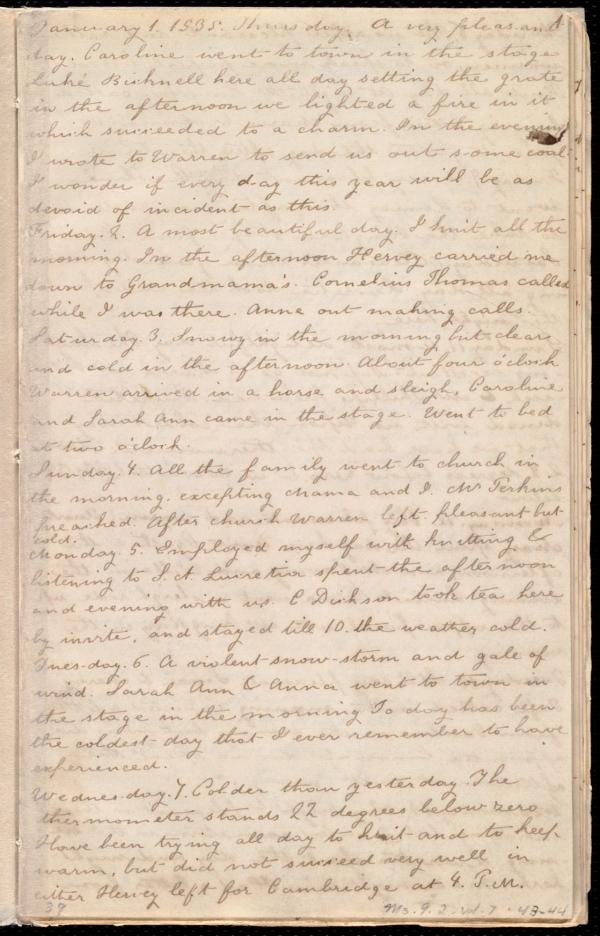 January 1. 1835. Thursday. A very pleasant 1
day. Caroline went to town in the stage
Luke Bicknell here all day setting the grate
in the afternoon we lighted a fire in it
which succeeded to a charm. In the evening
I wrote to Warren to send us out some coal.
I wonder if every day this year will be as
devoid of incident as this.
Friday. 2. A most beautiful day. I knit all the
morning. In the afternoon Hervey carried me
down to Grandmama's. Cornelius Thomas called
while I was there. Anne out making calls.
Saturday. 3. Snowy in the morning but clear
and cold in the afternoon. About four o'clock
Warren arrived in a horse and sleigh. Caroline
and Sarah Ann came in the stage. Went to bed
at two o'clock.
Sunday. 4. All the family went to church in
the morning, excepting Mama and I. Mr Perkins
preached. After church Warren left. pleasant but
cold.
Monday. 5. Employed myself with knitting &
listening to S. A. Lucretia spent the afternoon
and evening with us. C Dickson took tea here
by invite, and stayed till 10. the weather cold.
Tues-day. 6. A violent snow-storm and gale of
wind. Sarah Ann & Anna went to town in
the stage in the morning To day has been
the coldest day that I ever remember to have
experienced.
Wednesday. 7. Colder than yesterday The
thermometer stands 22 degrees below zero
Have been trying all day to knit and to keep
warm, but did not succeed very well in
either Hervey left for Cambridge at 4. P.M.
39 Ms. 9. 2. vol. 7 . 43-44